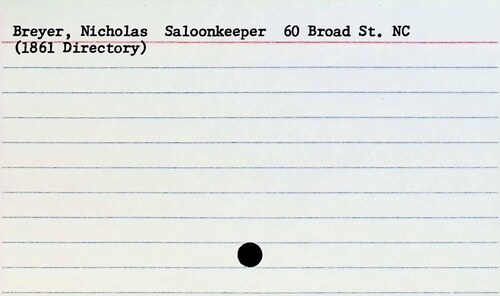 Breyer, Nicholas  Saloonkeeper  60 Broad St. NC
(1861 Directory)